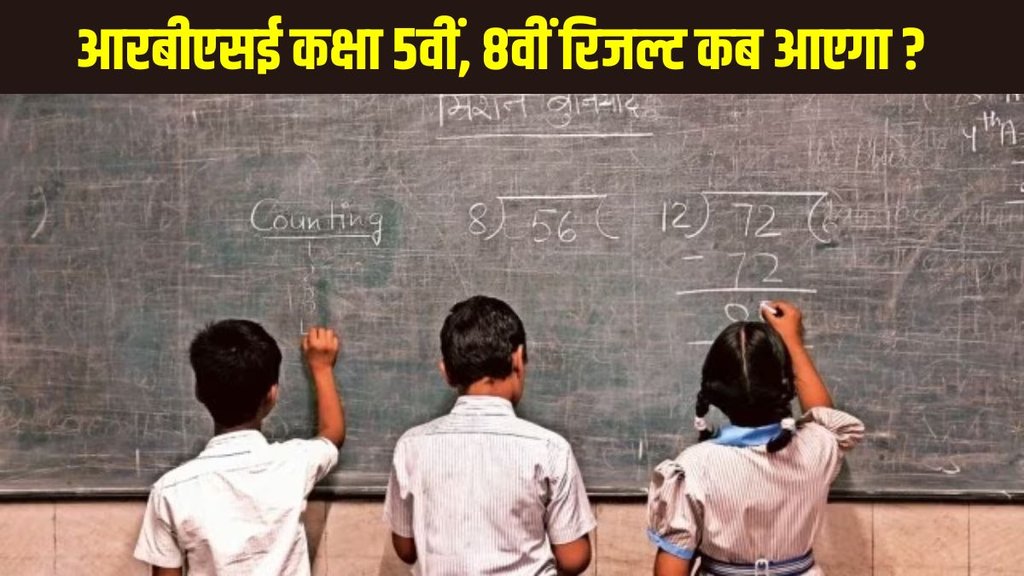 आरबीएसई कक्षा 5वीं, 8वीं रिजल्ट कब आएगा ?
मिशन बुनियाद
4th A
Counting
8) 56 (
12) 72 (
- 72
0